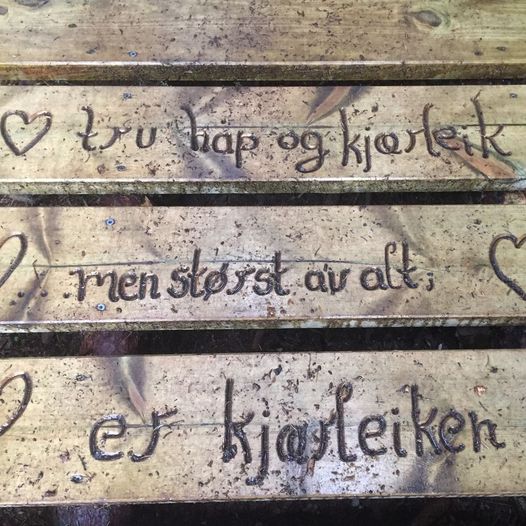 tru håp og kjærleik
...men størst av alt,
er kjærleiken